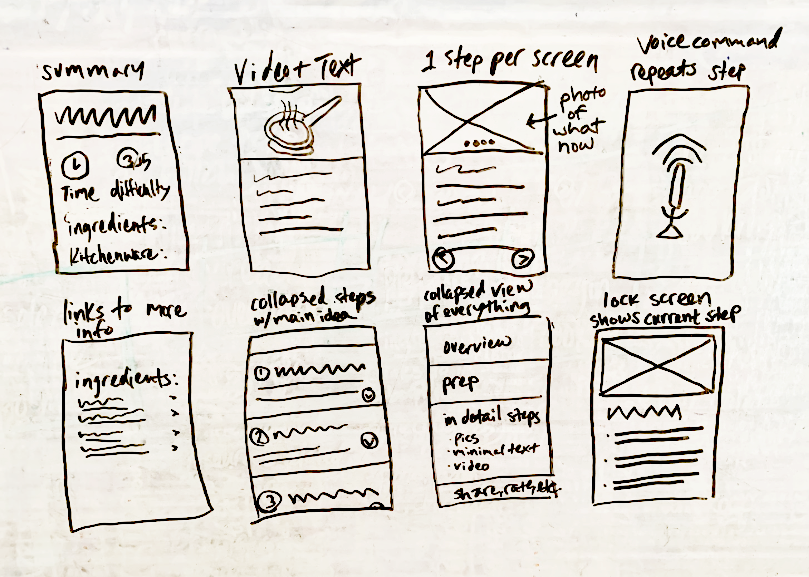 summary
Time difficulty
ingredients:
Kitchenware:
Video + Text
1 step per screen
photo
of
what
now
Voice command
repeats step
links to more
info
ingredients:
collapsed steps
w/main idea
1
2
3
collapsed view
of everything
overview
prep
in detail steps
· pics
· minimal text
· video
share, rate, etc.
lock screen
shows current step